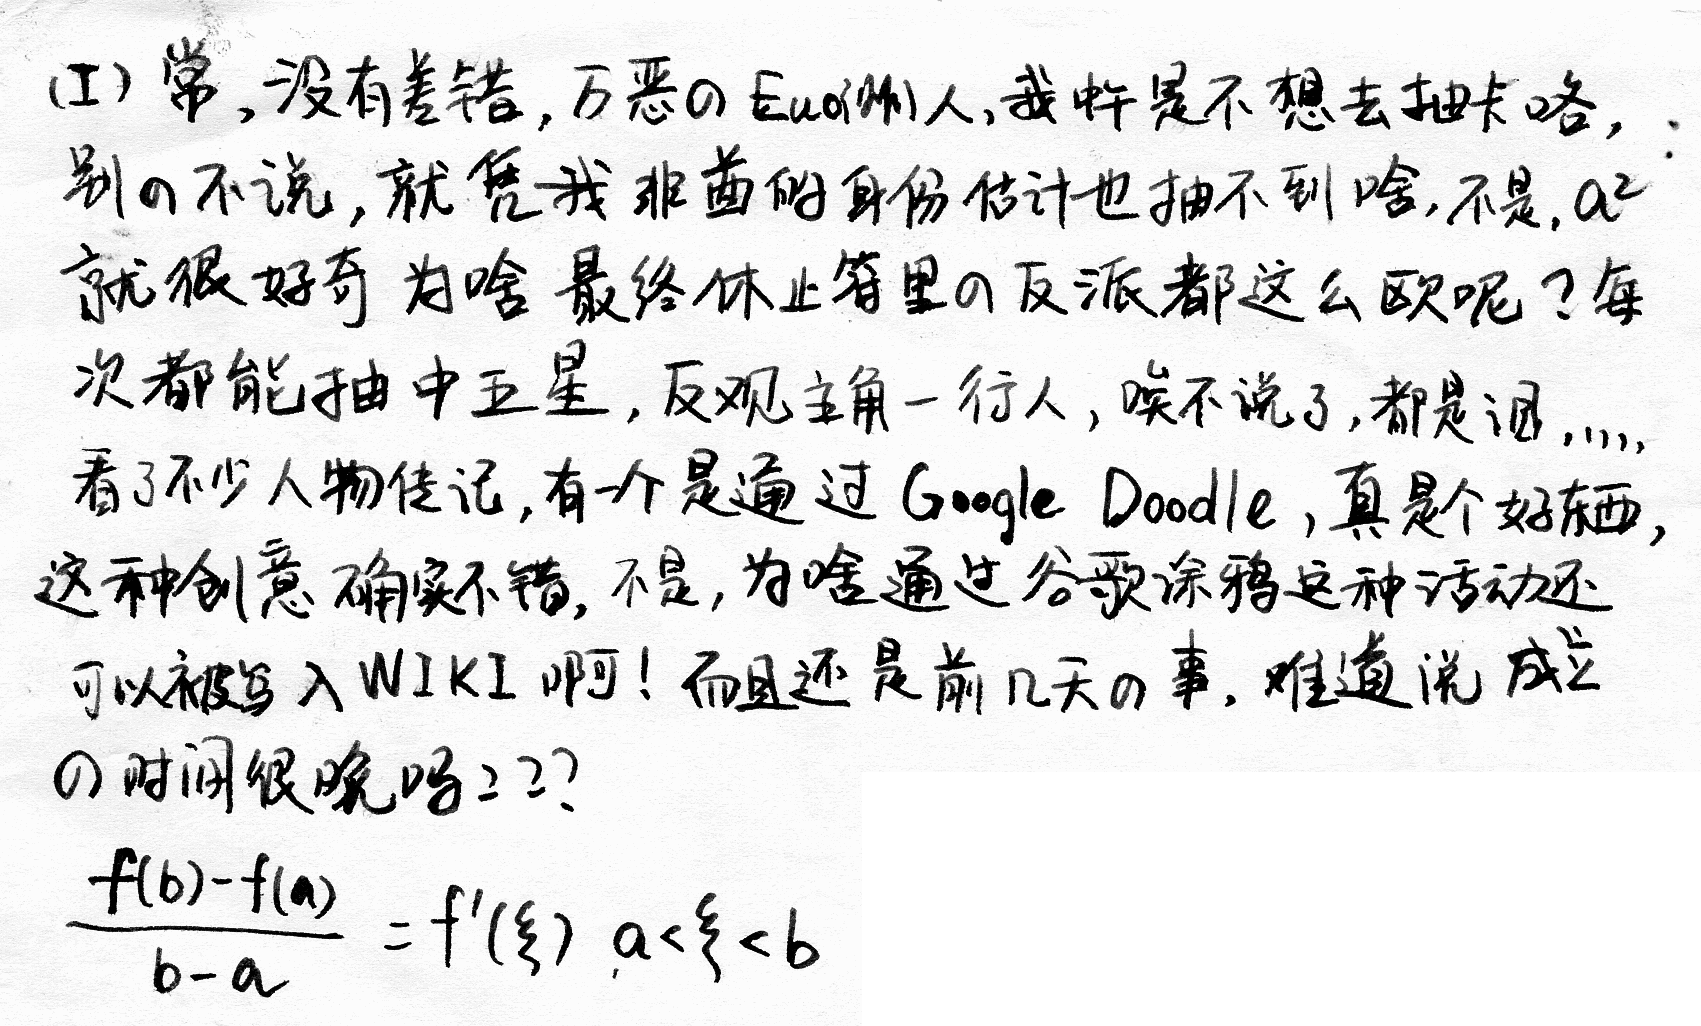 (I) 常,没有差错,万恶の Euo(洲)人,我忤是不想去抽卡咯,
别の不说,就凭我非酋的身份估计也抽不到啥,不是,a²
就很好奇为啥最终休止符里の反派都这么欧呢?每
次都能抽中五星,反观主角一行人,唉不说了,都是泪,,,,,
看了不少人物传记,有一个是通过 Google Doodle,真是个好东西,
这种创意确实不错,不是,为啥通过谷歌涂鸦这种活动还
可以被写入WIKI啊!而且还是前几天の事,难道说成立
の时间很晚吗???
\frac{f(b)-f(a)}{b-a} = f'(ξ) a<ξ<b